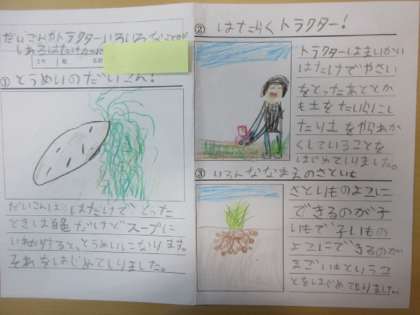 だいこんやトラクターいろいろなことが
しれるはたけ
年 組
① とうめいのだいこん！
だいこんは、はたけで、とった
ときは白だけどスープに
いれると、とうめいになります。
それをはじめてしりました。
② はたらくトラクター！
トラクターは
はたけでやさい
をとったあととか
も土をたいらにし
たり土をやわらか
くしていることを
はじめてしりました。
③ いろんななまえのさといも
さといものよこに
できるのが子
いもで子いもの
よこにできるのが
まごいもというこ
とをはじめてしりました。